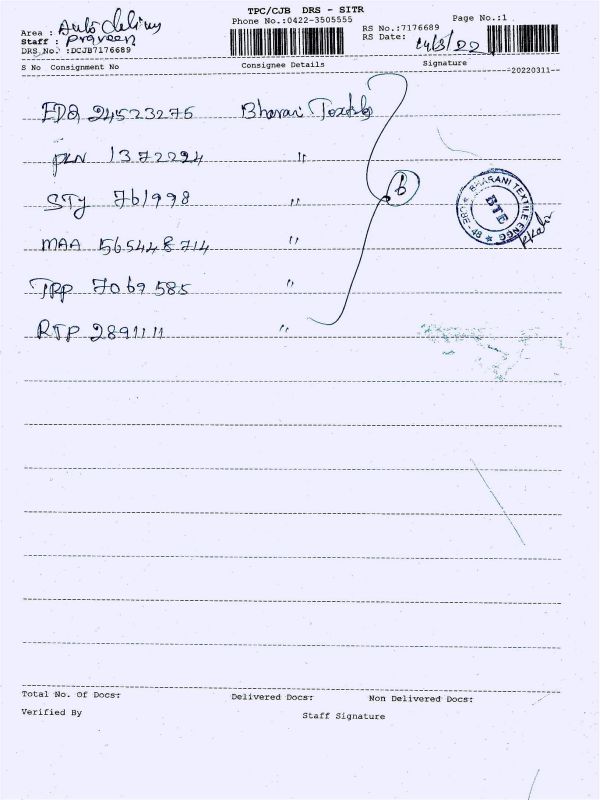 TPC/CJB DRS - SITR
Phone No.:0422-3505555
Page No.:1
Area : Auto delivery
Staff : Praveen
DRS No. :DCJB7176689
RS No.:7176689
RS Date: 14/3/22
S No Consignment No Consignee Details Signature
20220311
24523276 Bharani Textile
PLN 1372224 "
STY 761998 "
MAA 565448714 "
TRP 7069585 "
RTP 2891111 "
6
BHARANI TEXTILE ENGG
BTE
Total No. Of Docs: Delivered Docs: Non Delivered Docs:
Verified By Staff Signature